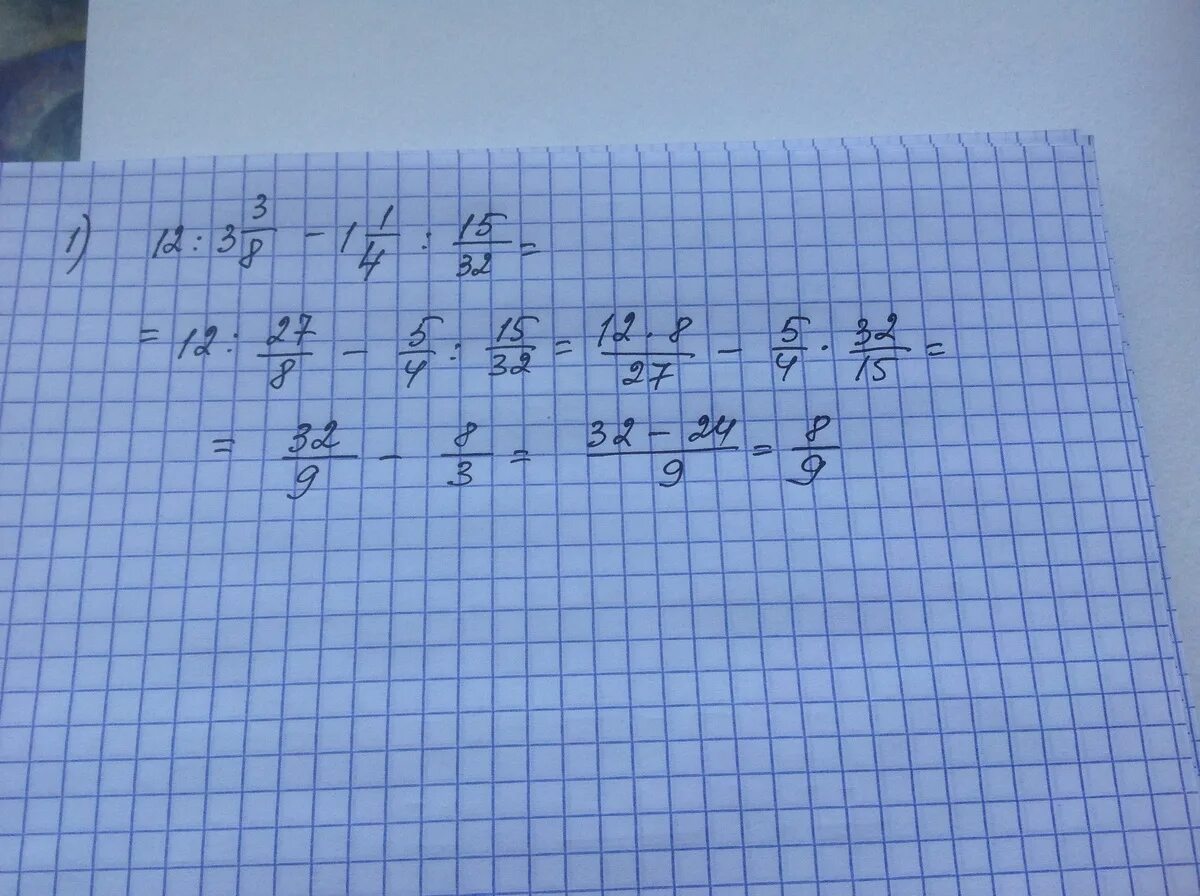 1) 12 : 3 3/8 - 1 1/4 : 15/32 =
= 12 : 27/8 - 5/4 : 15/32 = 12 · 8/27 - 5/4 · 32/15 =
= 32/9 - 8/3 = 32 - 24/9 = 8/9